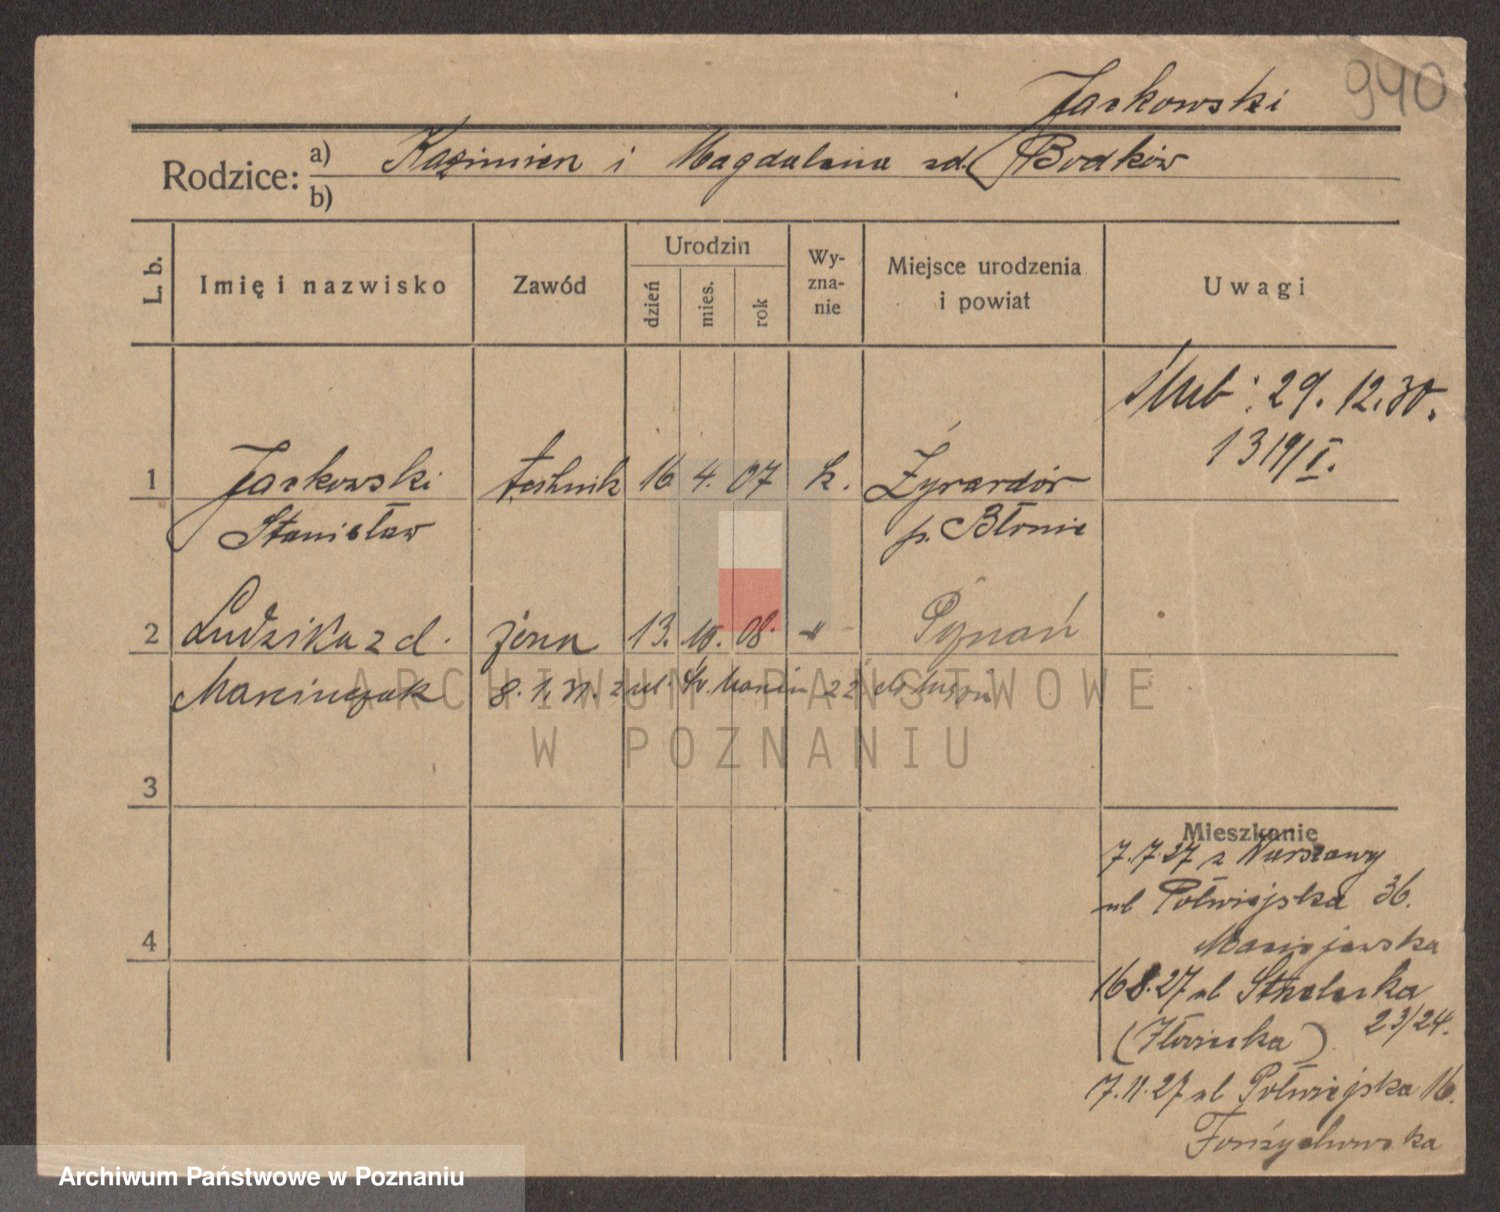 940
Jaskowski
Rodzice: a) Kazimierz i Magdalena zd Bodków
b)
L. b. Imię i nazwisko Zawód Urodzin dzień mies. rok Wy-zna-nie Miejsce urodzenia i powiat Uwagi
ślub: 29. 12. 30.
1319/I.
1 Jaskowski technik 16 4. 07 k. Żyrardów
Stanisław p. Błonie
2 Ludzika z d. żona 13. 10. 08. -"- Poznań
Marcinczak 8. 1. 31. z ul. Św. Marcin 22
3
4
Mieszkanie
7.7.27 z Warszawy
ul Półwiejska 36.
Maciejewska
16 8.27 ul Strzelecka
23/24.
7.11.27 ul Półwiejska 16.
ARCHIWUM PAŃSTWOWE
W POZNANIU
Archiwum Państwowe w Poznaniu